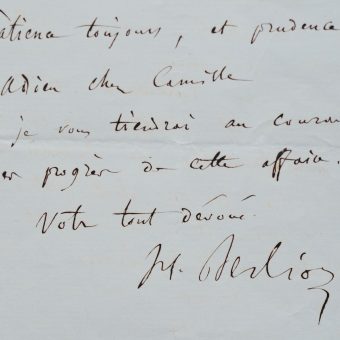 patience toujours, et prudence
Adieu cher Camille
je vous tiendrai au couran
progrès de cette affaire.
Votre tout dévoué.
H. Berlioz